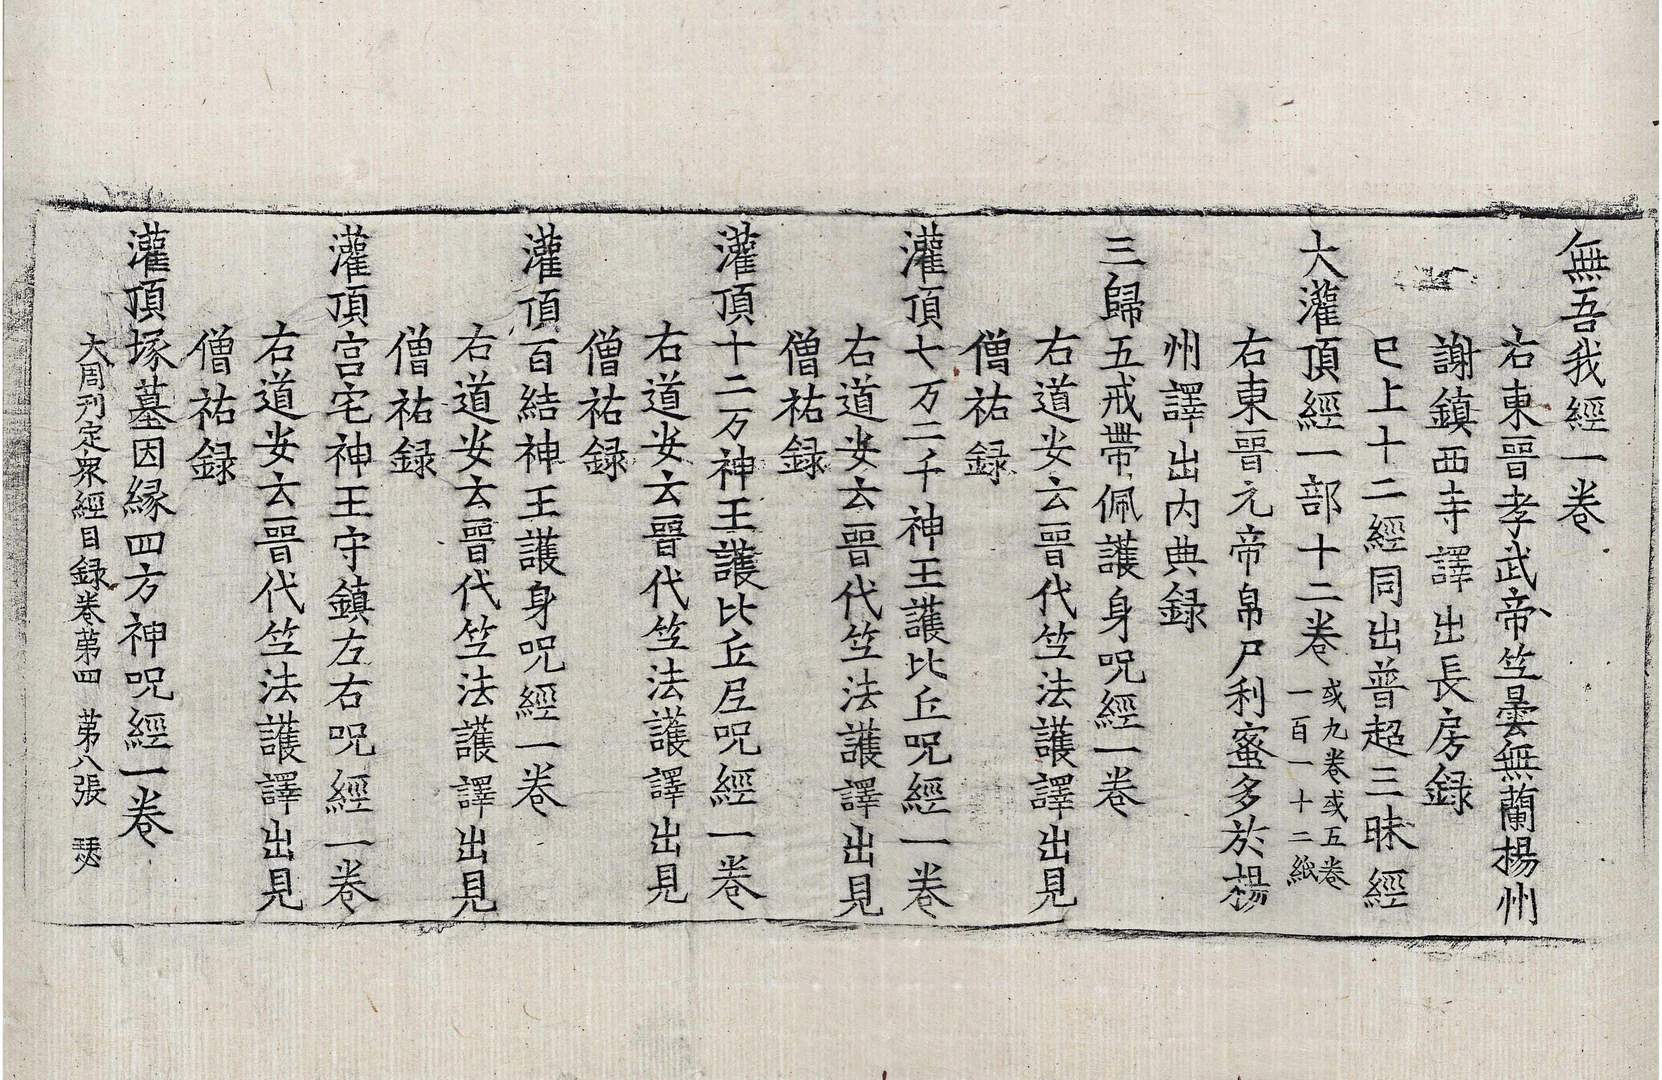 無吾我經一卷
右東晉孝武帝竺曇無蘭揚州
謝鎮西寺譯出長房録
已上十二經同出普超三昧經
大灌頂經一部十二卷 或九卷或五卷
一百一十二紙
右東晉元帝帛尸利蜜多於楊
州譯出内典録
三歸五戒帶佩護身呪經一卷
右道安云晉代竺法護譯出見
僧祐録
灌頂七万二千神王護比丘呪經一卷
右道安云晉代竺法護譯出見
僧祐録
灌頂十二万神王護比丘尼呪經一卷
右道安云晉代竺法護譯出見
僧祐録
灌頂百結神王護身呪經一卷
右道安云晉代竺法護譯出見
僧祐録
灌頂宫宅神王守鎮左右呪經一卷
右道安云晉代竺法護譯出見
僧祐録
灌頂塚墓因縁四方神呪經一卷
大周刋定衆經目録卷苐四 苐八張 瑟